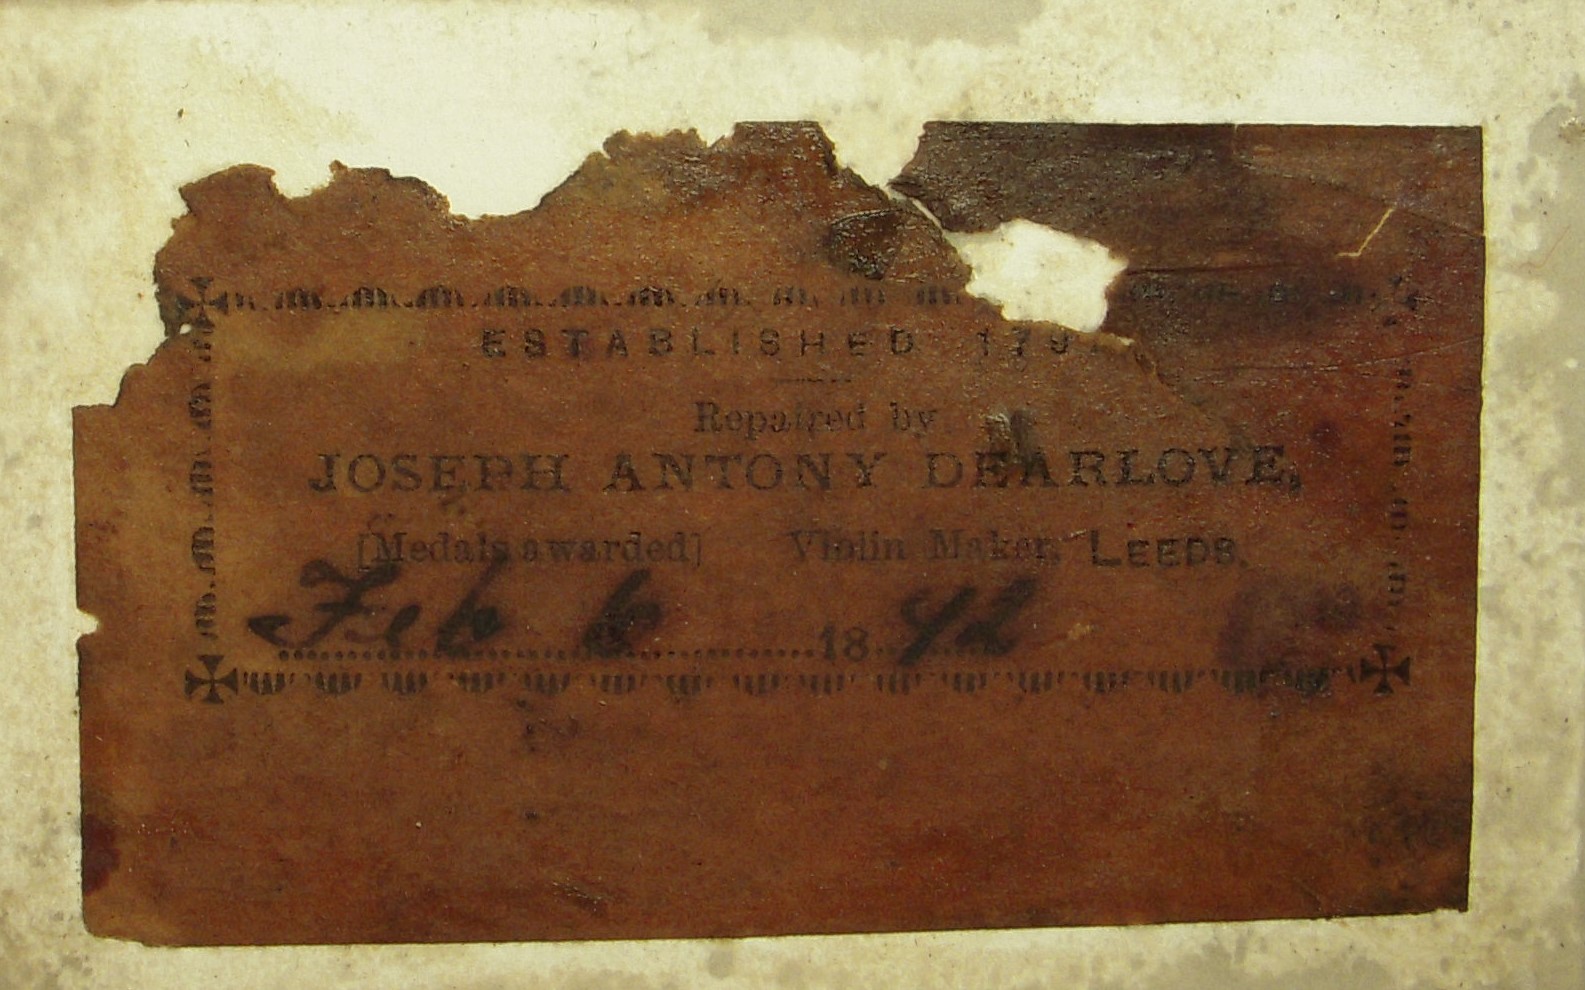 ESTABLISHED 179
Repaired by
JOSEPH ANTONY DEARLOVE,
[Medals awarded] Violin Maker, LEEDS.
Feb 6 18 92